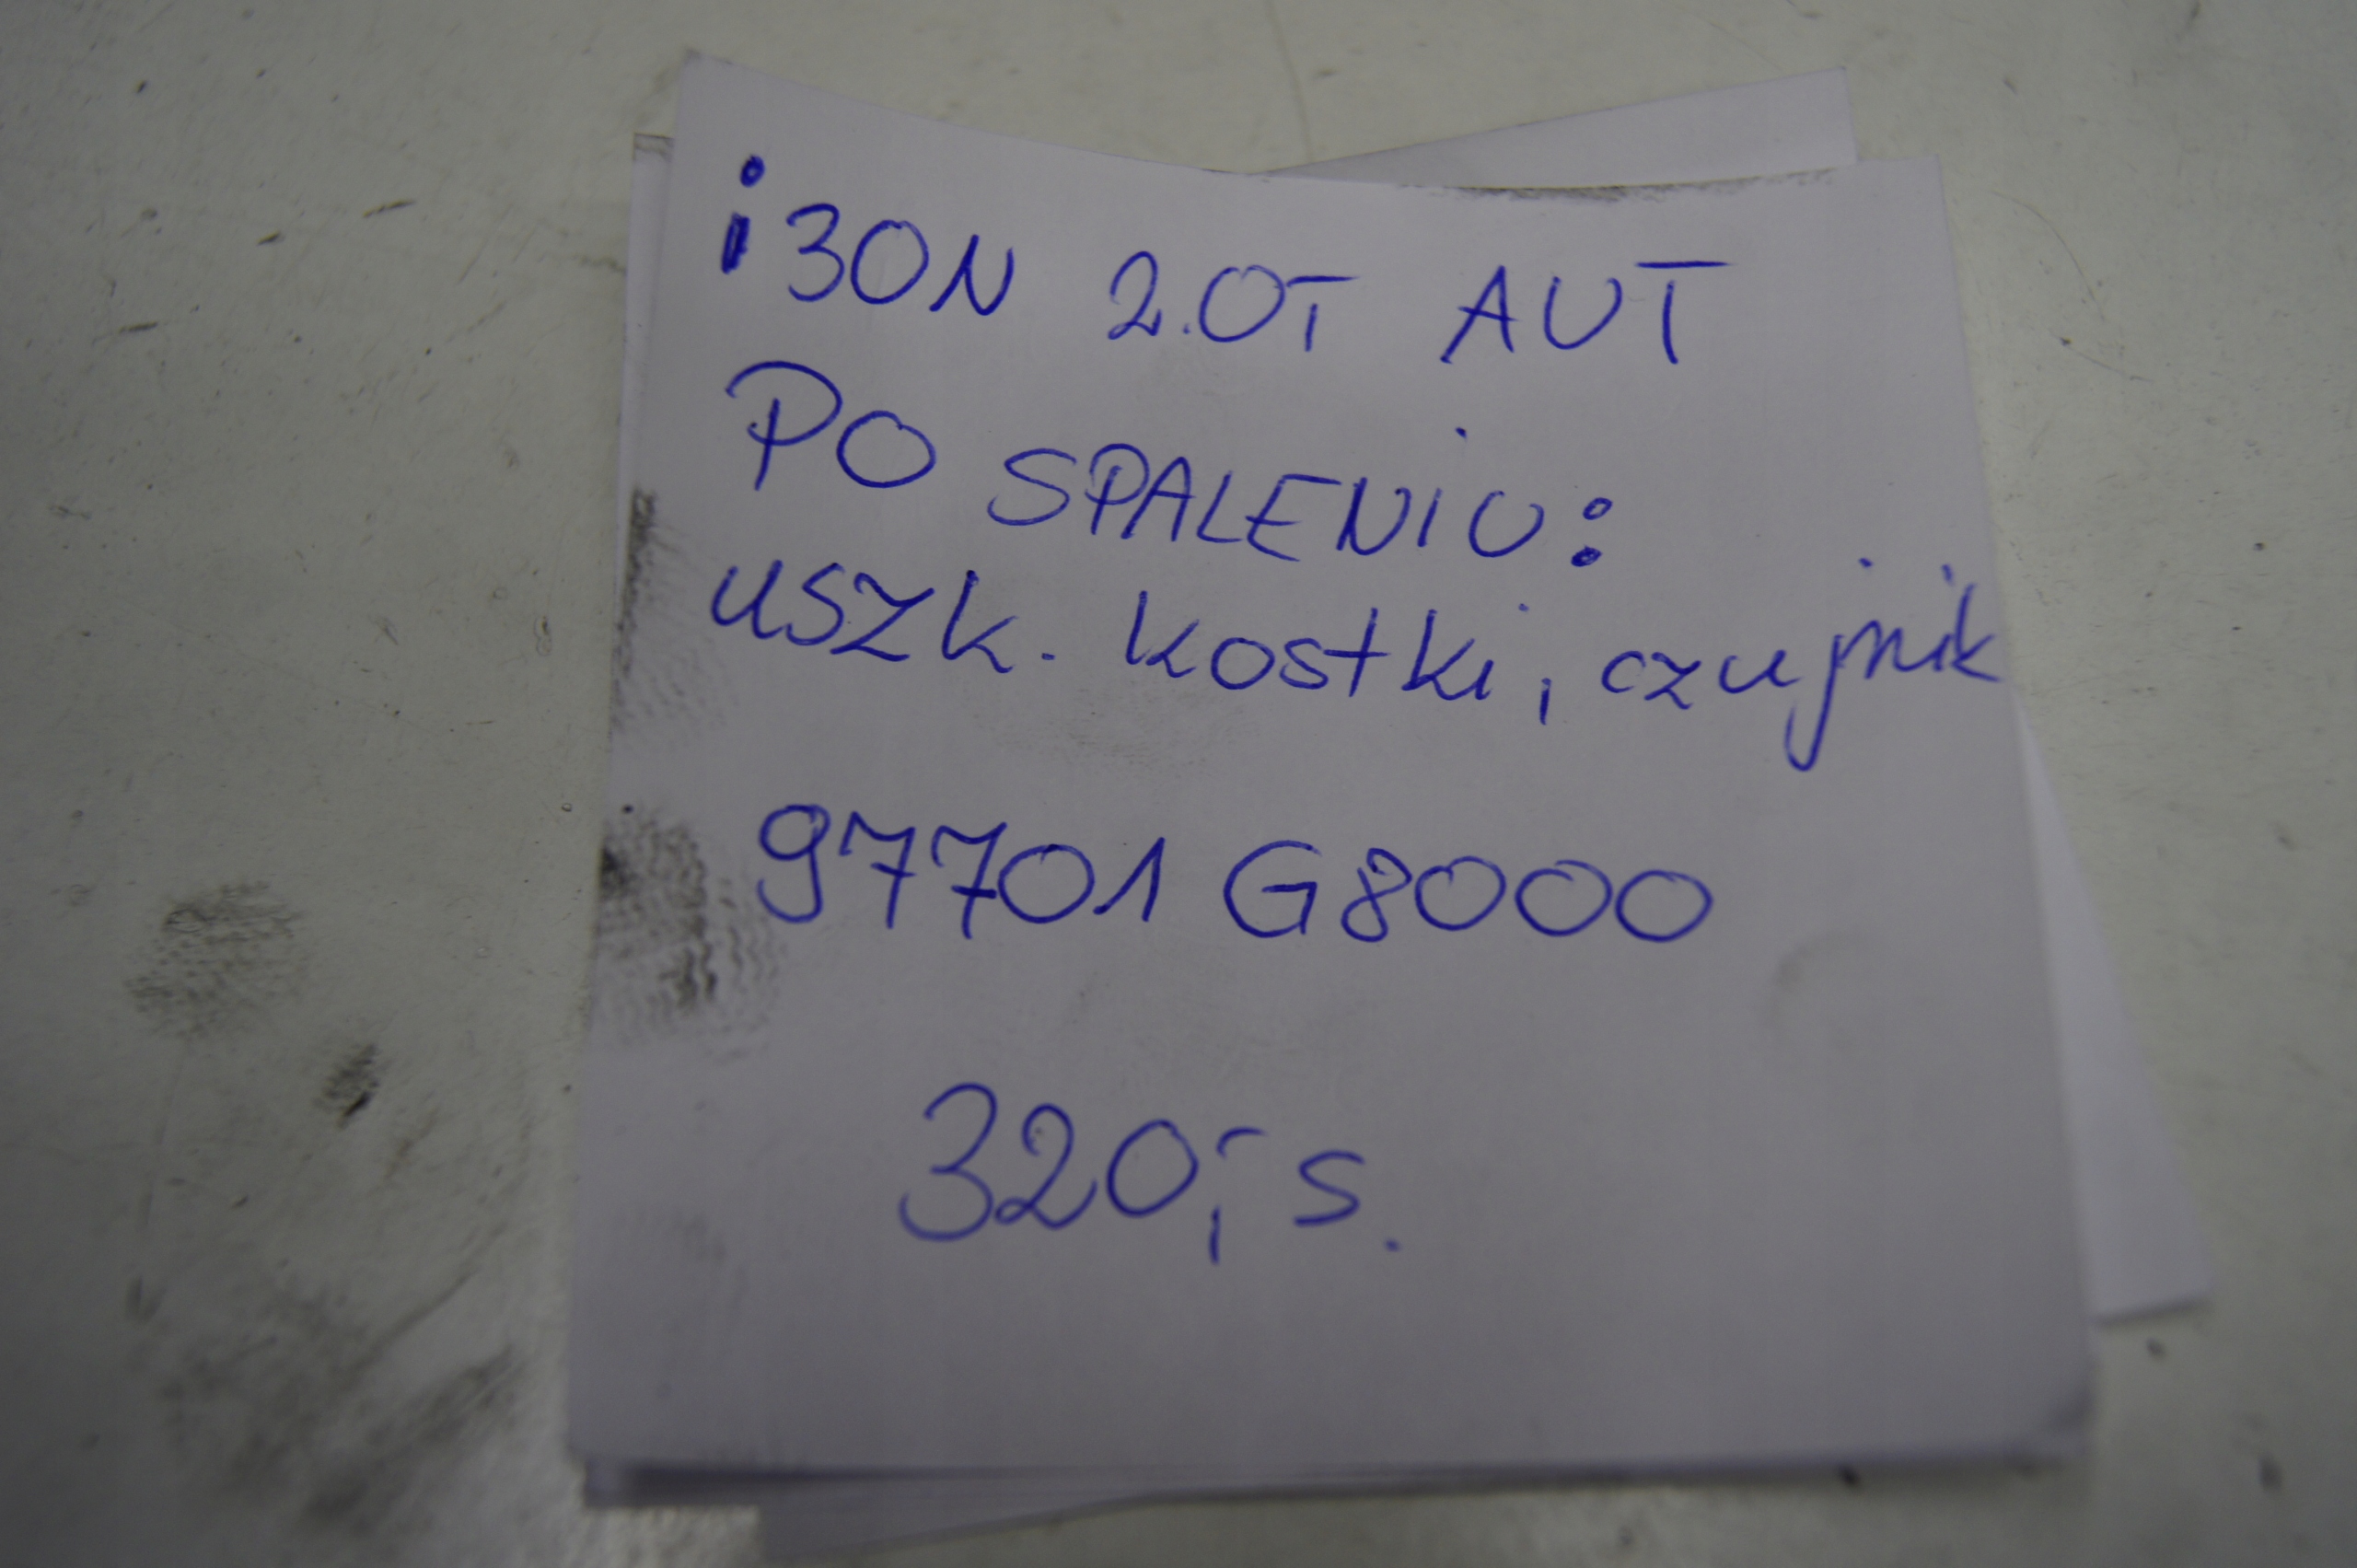 i30N 2.0T AUT
PO SPALENIU:
uszk. kostki, czujnik
97701 G8000
320,- s.